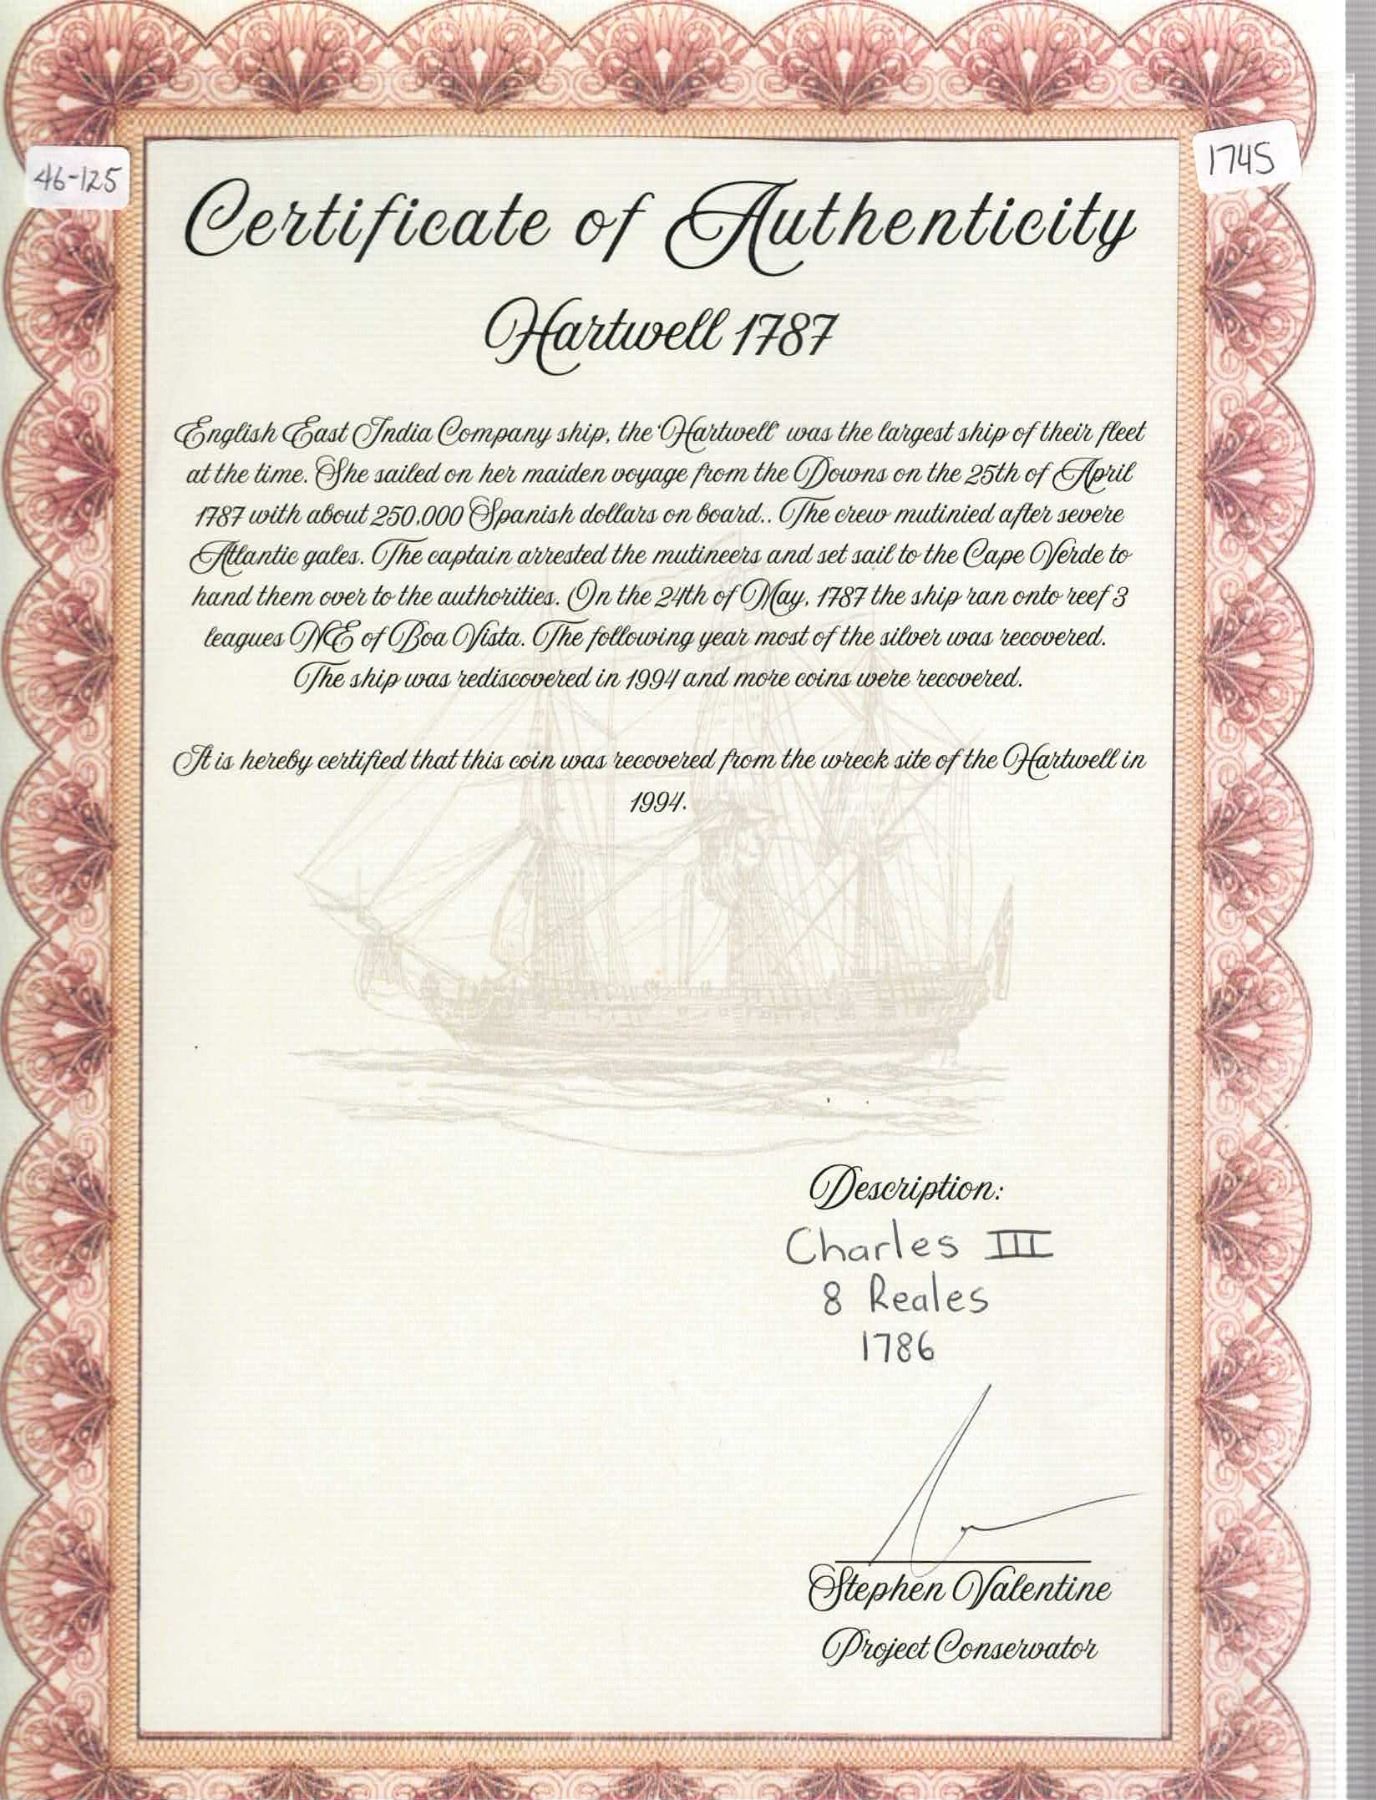 46-125
1745
Certificate of Authenticity
Hartwell 1787
English East India Company ship, the 'Hartwell' was the largest ship of their fleet
at the time. She sailed on her maiden voyage from the Downs on the 25th of April
1787 with about 250,000 Spanish dollars on board.. The crew mutinied after severe
Atlantic gales. The captain arrested the mutineers and set sail to the Cape Verde to
hand them over to the authorities. On the 24th of May, 1787 the ship ran onto reef 3
leagues NE of Boa Vista. The following year most of the silver was recovered.
The ship was rediscovered in 1994 and more coins were recovered.
It is hereby certified that this coin was recovered from the wreck site of the Hartwell in
1994.
Description:
Charles III
8 Reales
1786
Stephen Valentine
Project Conservator